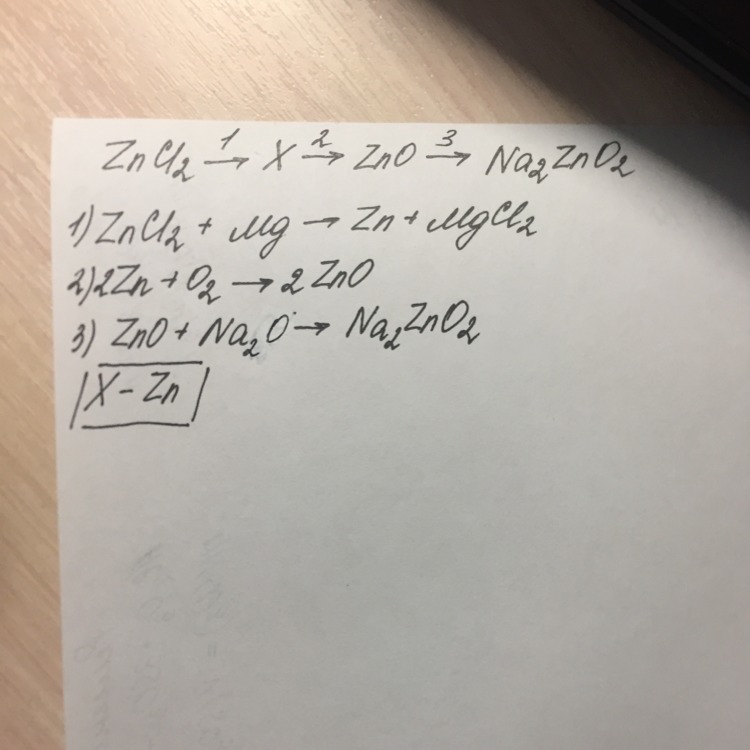 ZnCl₂ →¹ X →² ZnO →³ Na₂ZnO₂
1) ZnCl₂ + Mg → Zn + MgCl₂
2) 2Zn + O₂ → 2ZnO
3) ZnO + Na₂O → Na₂ZnO₂
X - Zn